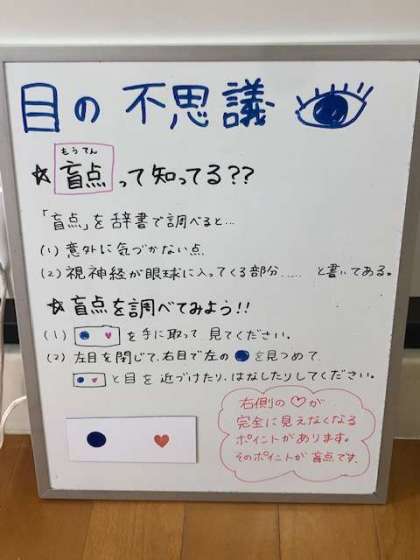 目の不思議
もうてん
☆盲点って知ってる??
「盲点」を辞書で調べると…
(1) 意外に気づかない点
(2) 視神経が眼球に入ってくる部分…… と書いてある。
☆盲点を調べてみよう!!
(1) ●♡を手に取って見てください。
(2) 左目を閉じて、右目で左の●を見つめて
●♡と目を近づけたり、はなしたりしてください。
右側の♡が
完全に見えなくなる
ポイントがあります。
そのポイントが盲点です。